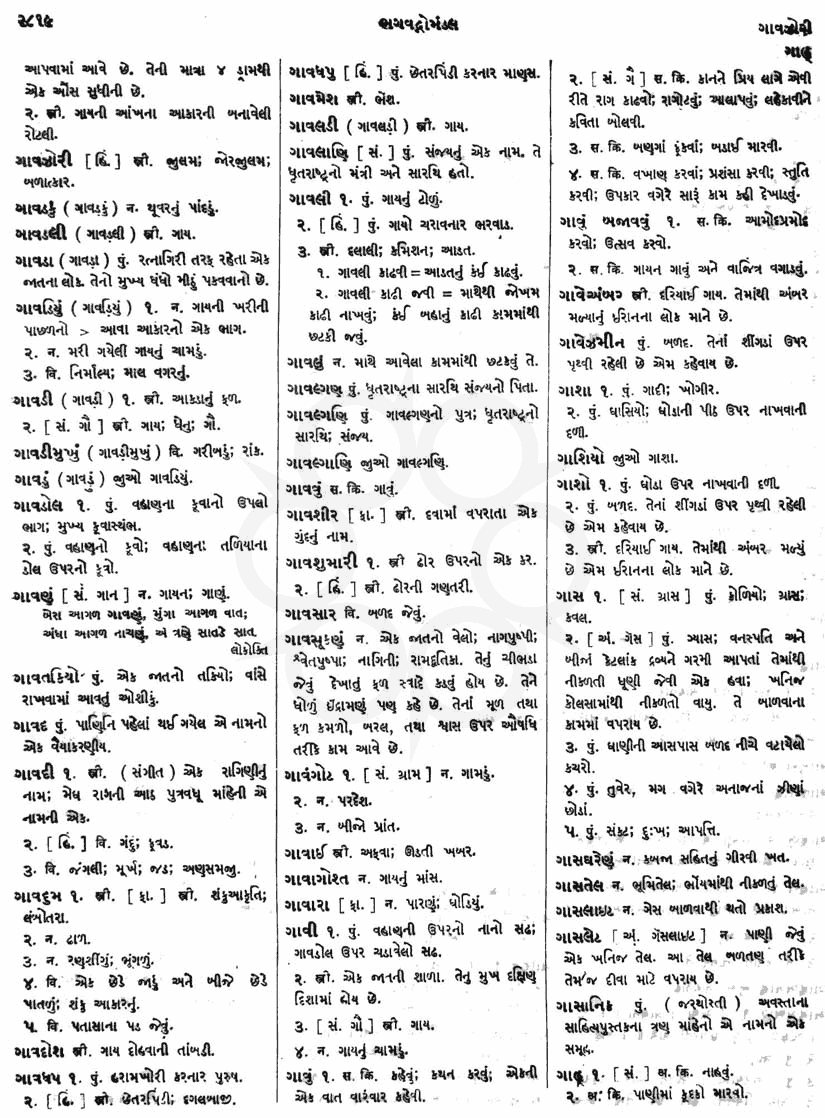 ૨૮૧૯
ભગવદ્ગોમંડલ
ગાવઝોરી
ગાહ્
આપવામાં આવે છે. તેની માત્રા ૪ ડ્રામથી
એક ઔંસ સુધીની છે.
૨. સ્ત્રી. ગાયની આંખના આકારની બનાવેલી
રોટલી.
ગાવઝોરી [ હિં. ] સ્ત્રી. જુલમ; જોરજુલમ;
બળાત્કાર.
ગાવડકું ( ગાવડ઼કું ) ન. થૂવરનું પાંદડું.
ગાવડલી ( ગાવડ઼લી ) સ્ત્રી. ગાય.
ગાવડા ( ગાવડ઼ા ) પું. રત્નાગીરી તરફ રહેતા એક
જાતના લોક. તેનો મુખ્ય ધંધો મીઠું પકવવાનો છે.
ગાવડિયું ( ગાવડ઼િયું ) ૧. ન. ગાયની ખરીની
પાછળનો > આવા આકારનો એક ભાગ.
૨. ન. મરી ગયેલી ગાયનું ચામડું.
૩. વિ. નિર્માલ્ય; માલ વગરનું.
ગાવડી ( ગાવડ઼ી ) ૧. સ્ત્રી. આકડાનું ફળ.
૨. [ સં. ગૌ ] સ્ત્રી. ગાય; ધેનુ; ગૌ.
ગાવડીમુખું ( ગાવડ઼ીમુખું ) વિ. ગરીબડું; રાંક.
ગાવડું ( ગાવડ઼ું ) જુઓ ગાવડિયું.
ગાવડોલ ૧. પું. વહાણના કૂવાનો ઉપલો
ભાગ; મુખ્ય કૂવાસ્થંભ.
૨. પું. વહાણનો કૂવો; વહાણના તળિયાના
ડોલ ઉપરનો કૂવો.
ગાવણું [ સં. ગાન ] ન. ગાયન; ગાણું.
બેરા આગળ ગાવણું, મુંગા આગળ વાત;
અંધા આગળ નાચણું, એ ત્રણે સાલડે સાત.
લોકોક્તિ
ગાવતકિયો પું. એક જાતનો તકિયો; વાંસે
રાખવામાં આવતું ઓશીકું.
ગાવદ પું. પાણિનિ પહેલાં થઈ ગયેલ એ નામનો
એક વૈયાકરણીય.
ગાવદી ૧. સ્ત્રી. ( સંગીત ) એક રાગિણીનું
નામ; મેઘ રાગની આઠ પુત્રવધૂ માંહેની એ
નામની એક.
૨. [ હિં. ] વિ. ગંદું; ફૂવડ.
૩. વિ. જંગલી; મૂર્ખ; જડ; અણસમજી.
ગાવદુમ ૧. સ્ત્રી. [ ફા. ] સ્ત્રી. શંકુઆકૃતિ;
લંબોતરા.
૨. ન. ઢાળ.
૩. ન. રણશીંગું; ભૂંગળું.
૪. વિ. એક છેડે જાડું અને બીજે છેડે
પાતળું; શંકુ આકારનું.
૫. વિ. પતાસાના પડ જેવું.
ગાવદોશ સ્ત્રી. ગાય દોહવાની તાંબડી.
ગાવધપ ૧. પું. હરામખોરી કરનાર પુરુષ.
૨. [ હિં. ] સ્ત્રી. છેતરપિંડી; દગલબાજી.
ગાવધપુ [ હિં. ] પું. છેતરપિંડી કરનાર માણસ.
ગાવમેશ સ્ત્રી. ભેંશ.
ગાવલડી ( ગાવલડ઼ી ) સ્ત્રી. ગાય.
ગાવલાણિ [ સં. ] પું. સંજયનું એક નામ. તે
ધૃતરાષ્ટ્રનો મંત્રી અને સારથિ હતો.
ગાવલી ૧. પું. ગાયનું ટોળું.
૨. [ હિં. ] પું. ગાયો ચરાવનાર ભરવાડ.
૩. સ્ત્રી. દલાલી; કમિશન; આડત.
૧. ગાવલી કાઢવી = આડતનું કંઈ કાઢવું.
૨. ગાવલી કાઢી જવી = માથેથી જોખમ
કાઢી નાખવું; કંઈ બહાનું કાઢી કામમાંથી
છટકી જવું.
ગાવલું ન. માથે આવેલા કામમાંથી છટકવું તે.
ગાવલ્ગણ પું. ધૃતરાષ્ટ્રના સારથિ સંજયનો પિતા.
ગાવલ્ગણિ પું. ગાવલ્ગણનો પુત્ર; ધૃતરાષ્ટ્રનો
સારથિ; સંજય.
ગાવલ્ગાણિ જુઓ ગાવલ્ગણિ.
ગાવવું સ. ક્રિ. ગાવું.
ગાવશીર [ ફા. ] સ્ત્રી. દવામાં વપરાતા એક
ગુંદનું નામ.
ગાવશુમારી ૧. સ્ત્રી ઢોર ઉપરનો એક કર.
૨. [ હિં. ] સ્ત્રી. ઢોરની ગણતરી.
ગાવસાર વિ. બળદ જેવું.
ગાવસૂકણું ન. એક જાતનો વેલો; નાગપુષ્પી;
શ્વેતપુષ્પા; નાગિની; રામદૂતિકા. તેનું ચીભડા
જેવું દેખાતું ફળ સ્વાદે કડવું હોય છે. તેને
ધોળું ઈંદ્રામણું પણ કહે છે. તેનાં મૂળ તથા
ફળ કમળો, બરલ, તથા શ્વાસ ઉપર ઔષધિ
તરીકે કામ આવે છે.
ગાવંગોટ ૧. [ સં. ગ્રામ ] ન. ગામડું.
૨. ન. પરદેશ.
૩. ન. બીજો પ્રાંત.
ગાવાઈ સ્ત્રી. અફવા; ઊડતી ખબર.
ગાવાગોશ્ત ન. ગાયનું માંસ.
ગાવારા [ ફા. ] ન. પારણું; ઘોડિયું.
ગાવી ૧. પું. વહાણની ઉપરનો નાનો સઢ;
ગાવડોલ ઉપર ચડાવેલો સઢ.
૨. સ્ત્રી. એક જાતની શાળા. તેનું મુખ દક્ષિણ
દિશામાં હોય છે.
૩. [ સં. ગૌ ] સ્ત્રી. ગાય.
૪. ન. ગાયનું ચામડું.
ગાવું ૧. સ. ક્રિ. કહેવું; કથન કરવું; એકની
એક વાત વારંવાર કહેવી.
૨. [ સં. ગૈ ] સ. ક્રિ. કાનને પ્રિય લાગે એવી
રીતે રાગ કાઢવો; રાગોટવું; આલાપવું; લહેકાવીને
કવિતા બોલવી.
૩. સ. ક્રિ. બણગાં ફૂંકવાં; બડાઈ મારવી.
૪. સ. ક્રિ. વખાણ કરવાં; પ્રશંસા કરવી; સ્તુતિ
કરવી; ઉપકાર વગેરે સારું કામ કહી દેખાડવું.
ગાવું બજાવવું ૧. સ. ક્રિ. આમોદપ્રમોદ
કરવો; ઉત્સવ કરવો.
૨. સ. ક્રિ. ગાયન ગાવું અને વાજિંત્ર વગાડવું.
ગાવેઅંબર સ્ત્રી. દરિયાઈ ગાય. તેમાંથી અંબર
મળ્યાનું ઈરાનના લોક માને છે.
ગાવેઝમીન પું. બળદ. તેનાં શીંગડાં ઉપર
પૃથ્વી રહેલી છે એમ કહેવાય છે.
ગાશા ૧. પું. ગાદી; ખોગીર.
૨. પું. ઘાસિયો; ઘોડાની પીઠ ઉપર નાખવાની
દળી.
ગાશિયો જુઓ ગાશા.
ગાશો ૧. પું. ઘોડા ઉપર નાખવાની દળી.
૨. પું. બળદ. તેનાં શીંગડાં ઉપર પૃથ્વી રહેલી
છે એમ કહેવાય છે.
૩. સ્ત્રી. દરિયાઈ ગાય. તેમાંથી અંબર મળ્યું
છે એમ ઈરાનના લોક માને છે.
ગાસ ૧. [ સં. ગ્રાસ ] પું. કોળિયો; ગ્રાસ;
કવલ.
૨. [ અં. ગૅસ ] પું. ગ્યાસ; વનસ્પતિ અને
બીજાં કેટલાંક દ્રવ્યને ગરમી આપતાં તેમાંથી
નીકળતી ધૂણી જેવી એક હવા; ખનિજ
કોલસામાંથી નીકળતો વાયુ. તે બાળવાના
કામમાં વપરાય છે.
૩. પું. ઘાણીની આસપાસ બળદ નીચે વટાયેલો
કચરો.
૪. પું. તુવેર, મગ વગેરે અનાજનાં ઝીણાં
છોડાં.
૫. પું. સંકટ; દુઃખ; આપત્તિ.
ગાસઘરેણું ન. કબજા સહિતનું ગીરવી ખત.
ગાસતેલ ન. ભૂમિતેલ; ભોંયમાંથી નીકળતું તેલ.
ગાસલાઇટ ન. ગેસ બાળવાથી થતો પ્રકાશ.
ગાસલેટ [ અં. ગૅસલાઇટ ] ન. પાણી જેવું
એક ખનિજ તેલ. આ તેલ બળતણ તરીકે
તેમજ દીવા માટે વપરાય છે.
ગાસાનિક પું. ( જરથોસ્તી ) અવસ્તાના
સાહિત્યપુસ્તકના ત્રણ માંહેનો એ નામનો એક
સમૂહ.
ગાહ્ ૧. [ સં. ] અ. ક્રિ. નાહવું.
૨. અ. ક્રિ. પાણીમાં કૂદકો મારવો.